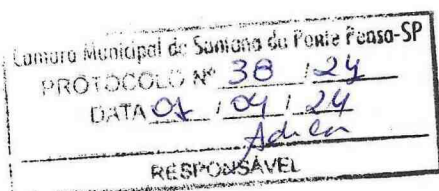 Camara Municipal de Santana da Ponte Pensa-SP
PROTOCOLO Nº 38 / 24
DATA 01 / 04 / 24
RESPONSÁVEL